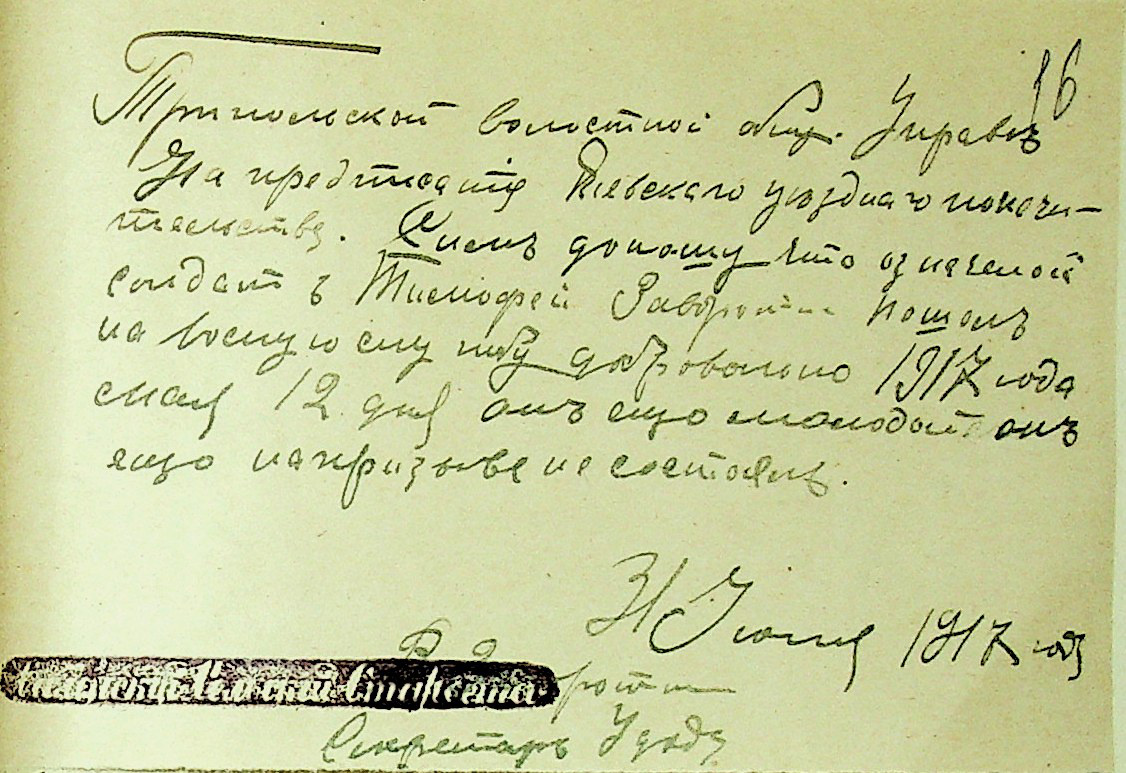 16
Трипольской волостной общ. Управѣ
На предписанія Киевскаго уѣзднаго попечи-
тельства. Симъ доношу что означеной
солдатъ Тимофей Заворотни пошолъ
на военую службу добровольно 1917 года
с мая 12 дня онъ ещо молодой онъ
ящо на призыве не состоялъ.
31 Июля 1917 году
Сельскій Староста
Секретарь